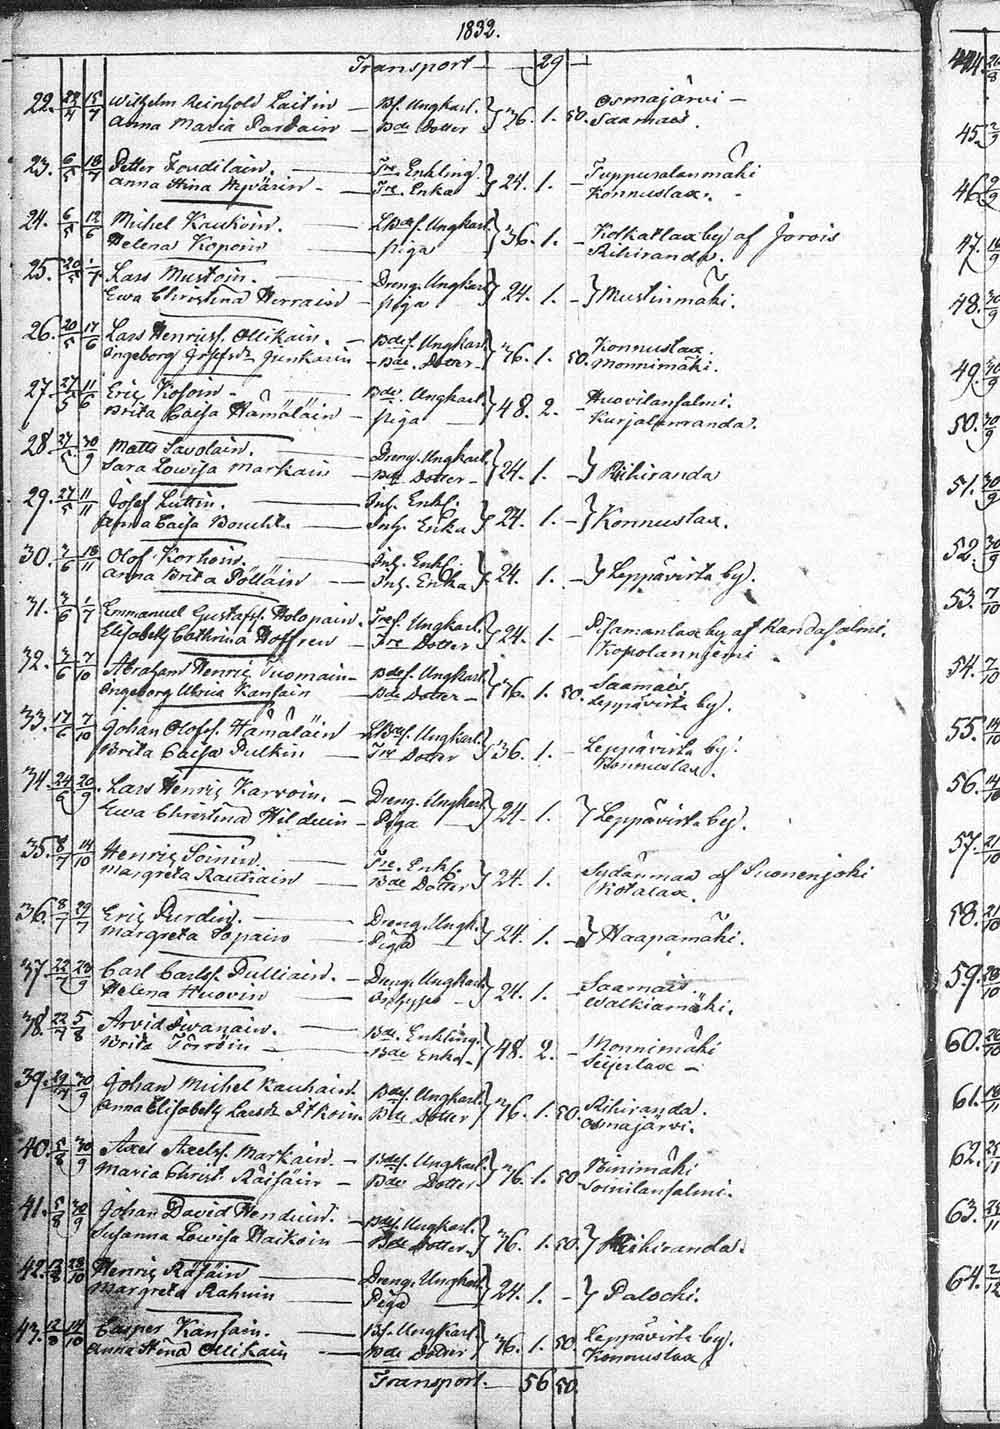 1832.
Transport — 29 —
22. 22/4 15/7 Wilhelm Reinhold Laitin — Bf. Ungkarl. } 36. 1. 50. Osmajärvi —
Anna Maria Pardain — Bde Dotter Saamais.
23. 6/5 18/7 Petter Toudilain. — Tre. Enkling. } 24. 1. — Tuppuralanmäki
Anna Stina Myvärin — Tre. Enka Konnuslax.
24. 6/5 12/6 Michel Kaukoin. — LBdef. Ungkarl } 36. 1. — Kolkatlax by af Jorois
Helena Kopoin — Piga Rihiranda.
25. 20/5 1/7 Lars Mustoin. — Dreng. Ungkarl } 24. 1. — } Mustinmäki.
Ewa Christina Herrain — Piga
26. 20/5 17/6 Lars Henricsf. Ollikain. — Bdef. Ungkarl } 36. 1. 50. Konnuslax.
Ingeborg Junkarin — Bde. Dotter Monnimäki.
27. 27/5 11/6 Eric Kosoin — Bde. Ungkarl. } 48. 2. — Huovilansalmi.
Brita Caisa Hämäläin — Piga Kurjalanranda.
28. 27/5 30/9 Matts Savolain. — Dreng. Ungkarl. } 24. 1. — } Rihiranda
Sara Lowisa Markain — Bde Dotter
29. 27/5 11/11 Josef Luttin. — Inh. Enkl. } 24. 1. — } Konnuslax.
Anna Caisa — Inh. Enka
30. 3/6 18/11 Olof Korhoin. — Inh. Enkl. } 24. 1. — } Leppävirta by.
Anna Brita Pölläin — Inh. Enka
31. 3/6 1/7 Emmanuel Gustafsf. Holopain. Tref. Ungkarl. } 24. 1. — Pisamanlax by af Randasalmi.
Elisabeth Cathrina Hoffren — Tre Dotter Kopolanniemi
32. 3/6 7/10 Abraham Henric Tuomain — Bdef. Ungkarl. } 36. 1. 50. Saamais.
Ingeborg Ulrica Kansain — Bde Dotter — Leppävirta by.
33. 17/6 7/10 Johan Olofsf. Hämäläin — LBdef. Ungkarl. } 36. 1. — Leppävirta by.
Brita Caisa Pulkin — Tre Dotter Konnuslax.
34. 24/6 20/9 Lars Henric Karvoin. — Dreng. Ungkarl } 24. 1. } Leppävirta by.
Ewa Christina Hilduin — Piga
35. 8/7 14/10 Henric Soinin. — Tre. Enkl. } 24. 1. Sydänmaa af Suonenjoki
Margreta Rautiain — Bde Dotter Kotalax.
36. 8/7 29/7 Eric Purdin. — Dreng. Ungk. } 24. 1. — } Haapamäki.
Margreta Topain — Piga
37. 22/7 23/9 Carl Carlsf. Pulliain. — Dreng. Ungkarl } 24. 1. — Saamais.
Helena Huovin Walkiamäki.
38. 22/7 5/8 Arvid Iivanain. — Bde. Enkling. } 48. 2. — Monnimäki
Brita Törröin — Bde Enka Seijerlax —
39. 29/7 30/9 Johan Michel Kauhain. Bdef. Ungkarl. } 36. 1. 50. Rihiranda.
Anna Elisabeth Larsdr Itkoin. Bde Dotter Osmajärvi.
40. 5/8 30/9 Axel Axelsf. Markain. — Bdef. Ungkarl. } 36. 1. 50. Nenimäki
Maria Christ. Räisäin — Bde Dotter Soinilansalmi.
41. 5/8 30/9 Johan David Henduin. — Bdf. Ungkarl. } 36. 1. 50. } Rihiranda.
Susanna Lowisa Haikoin — Bde Dotter
42. 12/8 28/10 Henric Räsäin — Dreng. Ungkarl } 24. 1. — } Palochi.
Margreta Rahuin — Piga
43. 12/8 14/10 Casper Kansain. — Bf. Ungkarl. } 36. 1. 50. Leppävirta by.
Anna Stina Ollikain — Bde Dotter Konnuslax
Transport. — 56 50.
44. 26/8
45. 2/9
46. 9/9
47. 16/9
48. 30/9
49. 30/9
50. 30/9
51. 30/9
52. 30/9
53. 7/10
54. 7/10
55. 14/10
56. 14/10
57. 21/10
58. 21/10
59. 28/10
60. 28/10
61. 18/11
62. 25/11
63. 25/11
64. 2/12